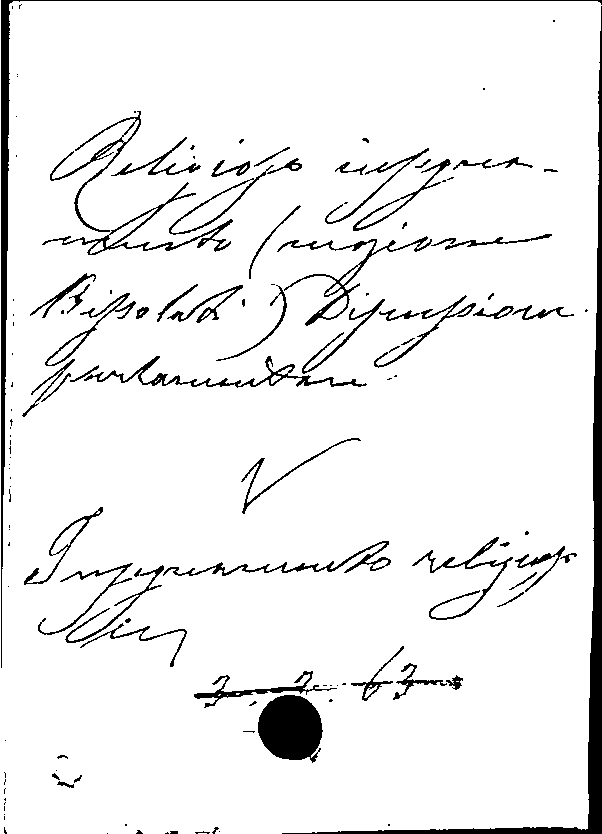 Religioso insegna-
mento (mozione
Bissolati) Discussione
parlamentare
V
Insegnamento religioso
3. 2. 63